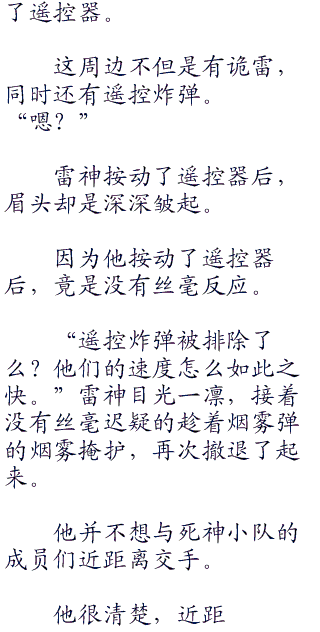 了遥控器。
这周边不但是有诡雷，
同时还有遥控炸弹。
“嗯？”
雷神按动了遥控器后，
眉头却是深深皱起。
因为他按动了遥控器
后，竟是没有丝毫反应。
“遥控炸弹被排除了
么？他们的速度怎么如此之
快。”雷神目光一凛，接着
没有丝毫迟疑的趁着烟雾弹
的烟雾掩护，再次撤退了起
来。
他并不想与死神小队的
成员们近距离交手。
他很清楚，近距